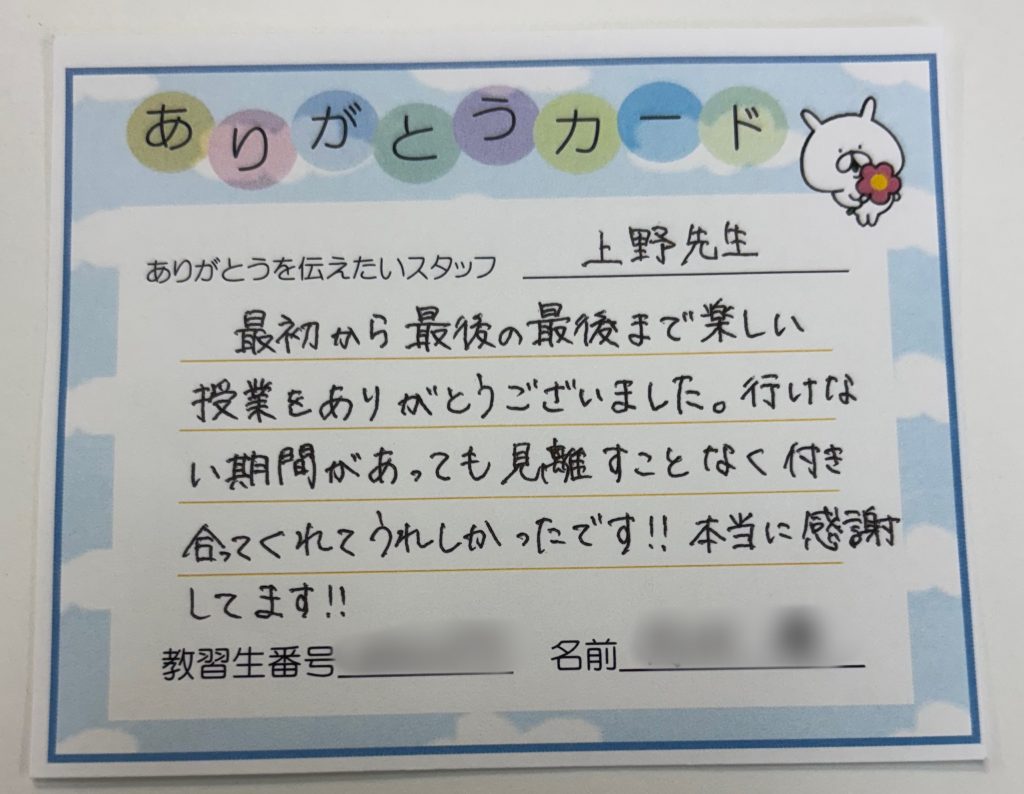 ありがとうカード
ありがとうを伝えたいスタッフ 上野先生
最初から最後の最後まで楽しい
授業をありがとうございました。行けな
い期間があっても見離すことなく付き
合ってくれてうれしかったです!! 本当に感謝
してます!!
教習生番号 名前